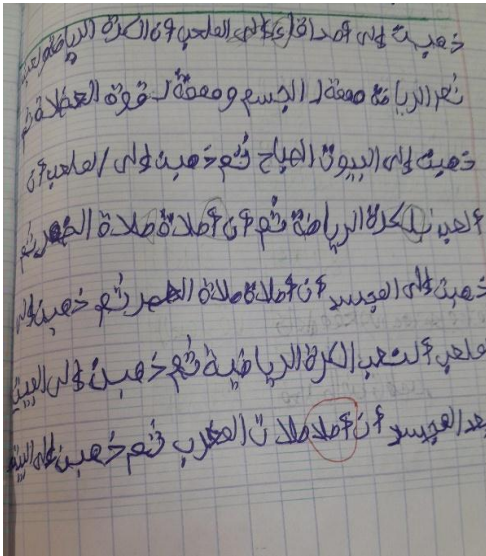 ذهبت إلى أصدقائي إلى الملعب وأن الكرة الرياضة ولعب
ثم الرياضة مهمة لـ الجسم ومهمة لـ قوة العضلات ثم
ذهبت إلى البيوت الصباح ثم ذهبت إلى الملعب أن
ألعب ن الكرة الرياضة ثم أن أصلاة صلاة الظهر ثم
ذهبت إلى المجسد أن أصلاة صلاة الظهر ثم ذهبت إلى
ملعب ألتعب الكرة الرياضية ثم ذهبت إلى البيت
بعد المجسد أن أصلا صلات المغرب ثم ذهبت إلى البيت